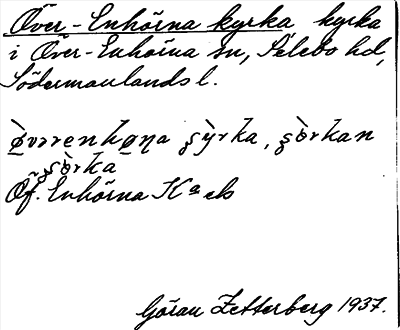 Över-Enhörna kyrka kyrka
i Över-Enhörna sn, Selebo hd,
Södermanlands l.
kyrka, kørkan
Öf. Enhörna K a els
Göran Zetterberg 1937.